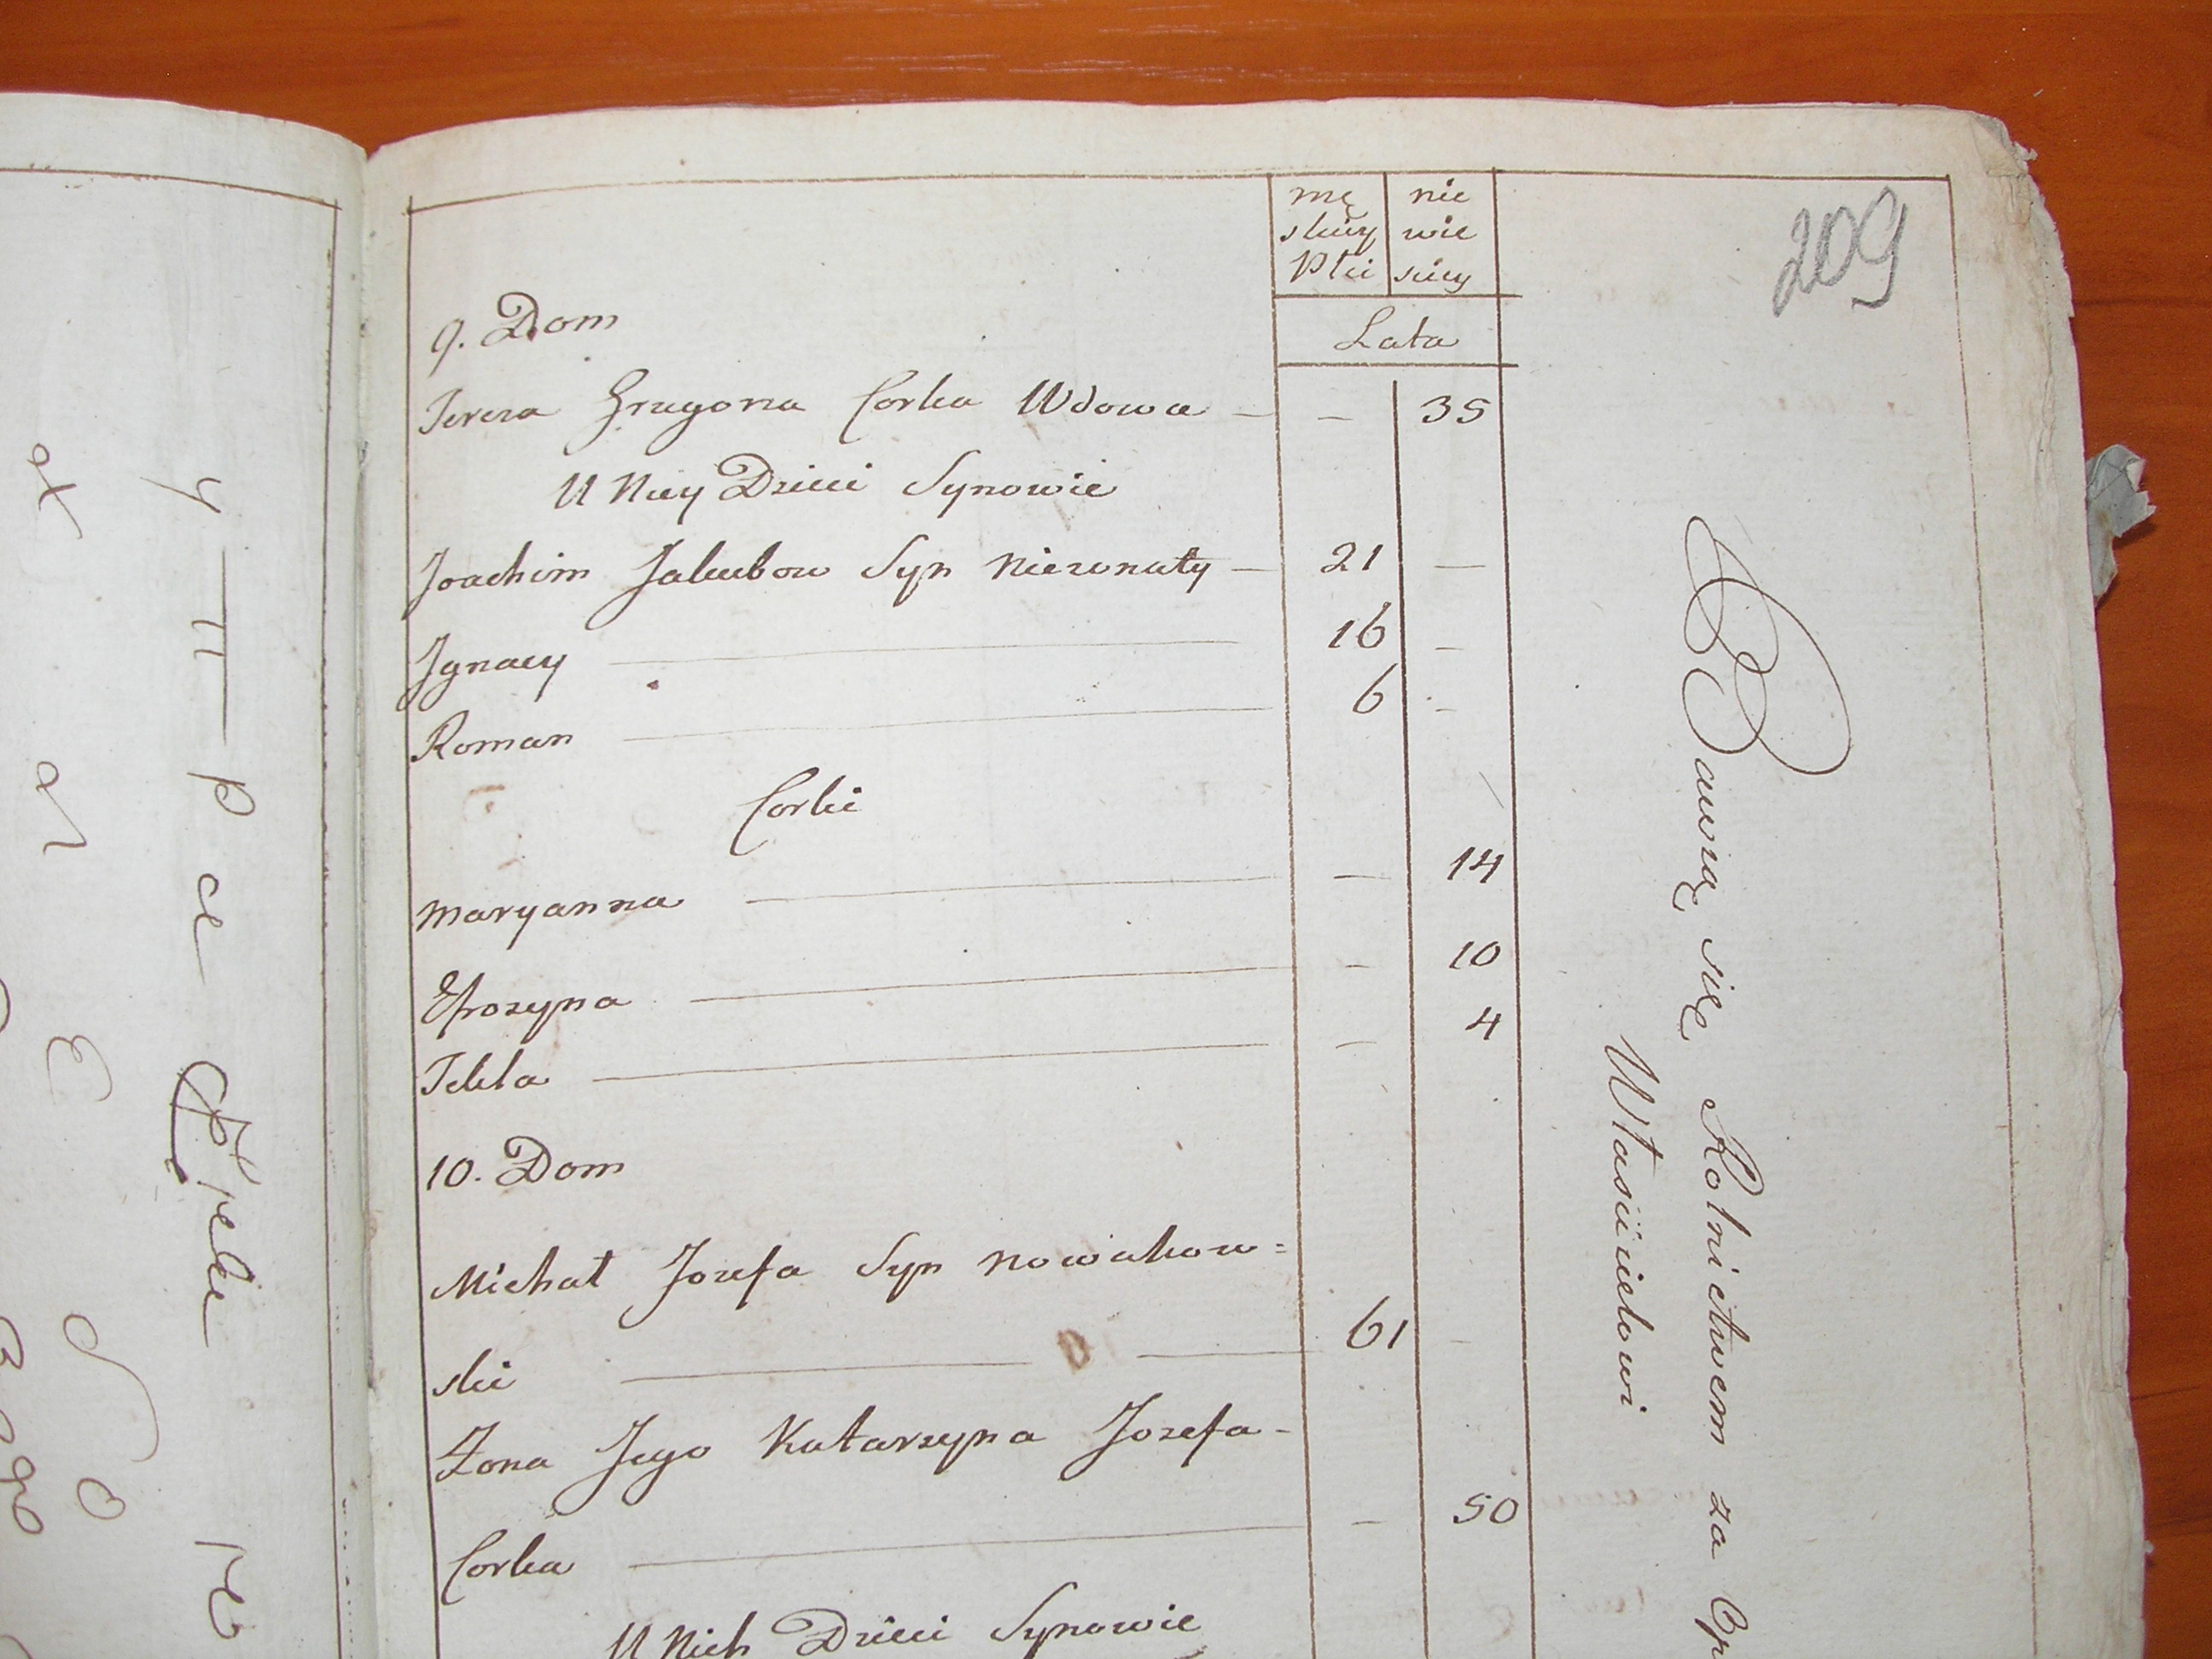 mę
skiey
Płci
nie
wie
sciey
209
Lata
9. Dom
Teresa Grzegorza Corka Wdowa — — 35
U Niey Dzieci Synowie
Joachim Jakubow Syn Niezonaty — 21 —
Ignacy — 16 —
Roman — 6 —
Corki
Maryanna — — 14
Efrozyna — — 10
Tekla — — 4
10. Dom
Michał Jozefa Syn Nowakow=
ski — 61 —
Żona Jego Katarzyna Jozefa-
Corka — — 50
U Nich Dzieci Synowie
Bawią się Rolnictwem za Op
Właścicielowi